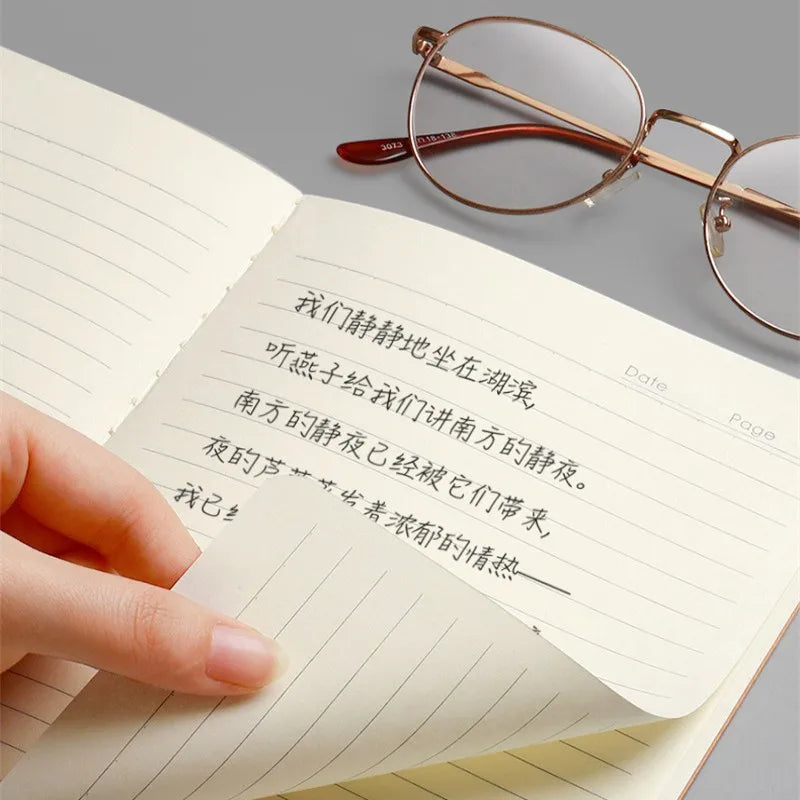 3023 18-138
Date
Page
我们静静地坐在湖滨,
听燕子给我们讲南方的静夜。
南方的静夜已经被它们带来,
夜的芦 发着浓郁的情热——
我已